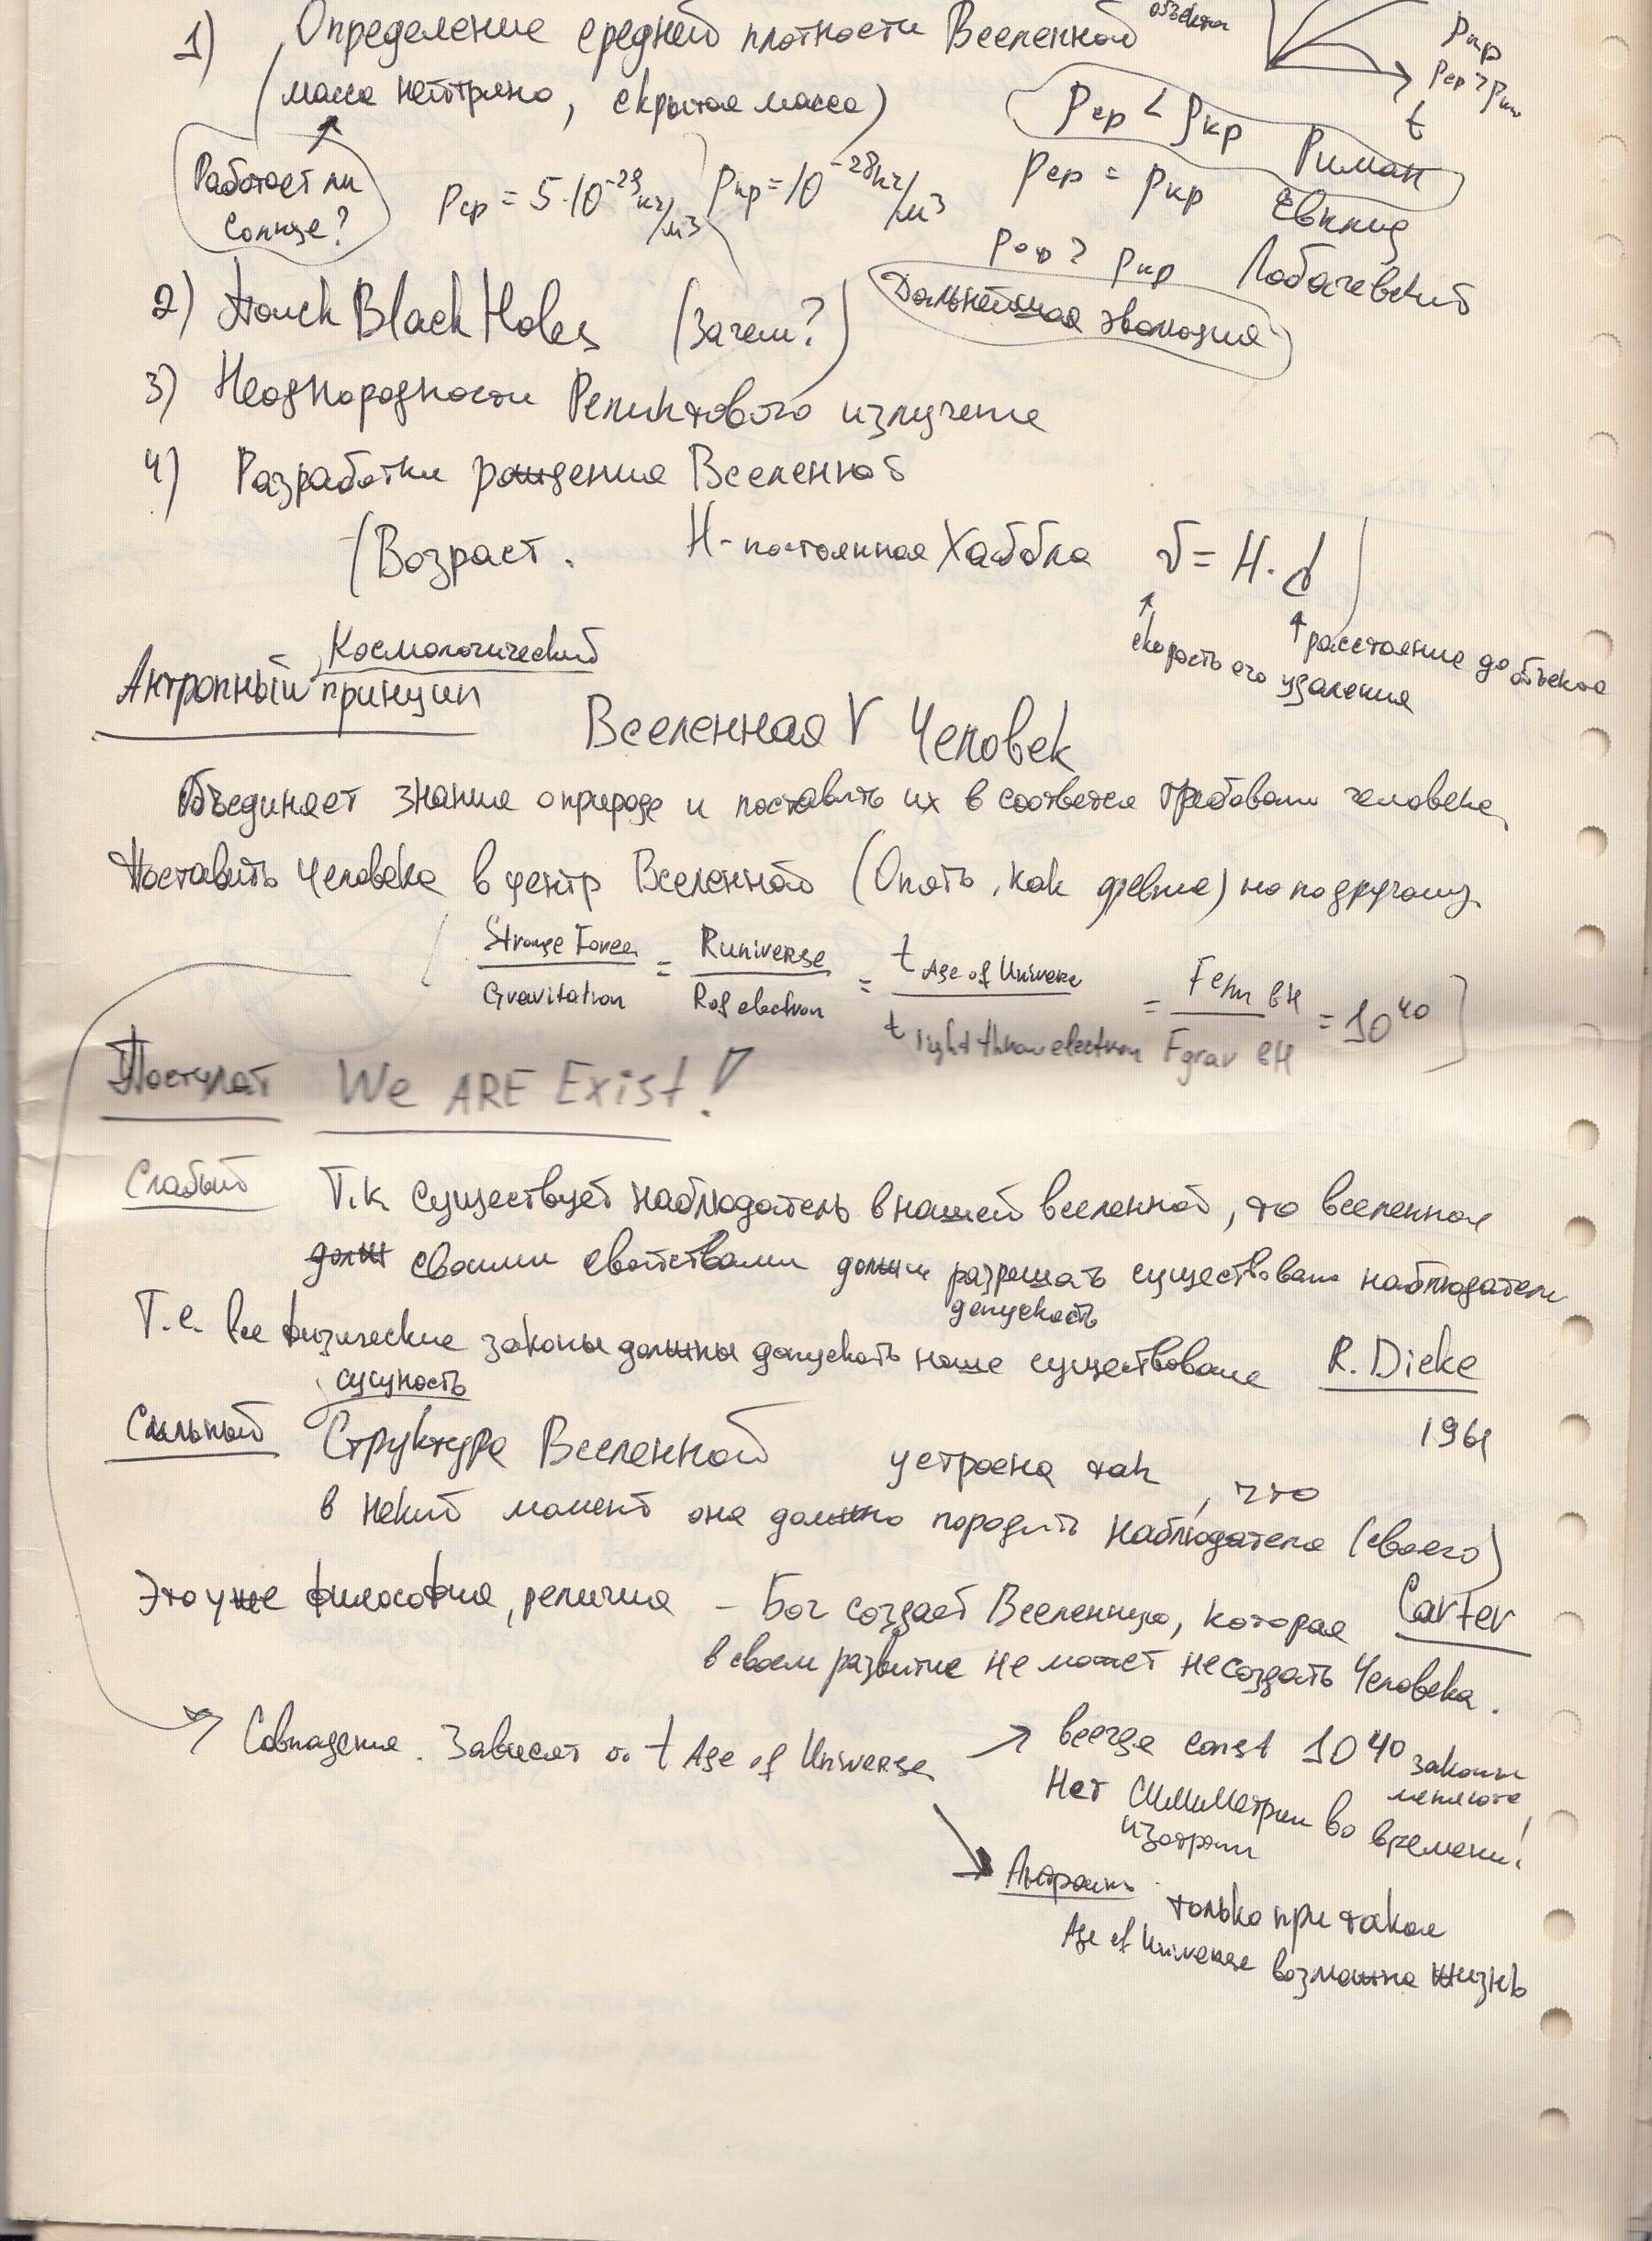 1) Определение средней плотности Вселенной объекта
(масса нейтрино, скрытая масса)
ρкр
ρср > ρкр
t
Работает ли
Солнце?
ρср = 5·10⁻²⁹ кг/м³ ρкр = 10⁻²⁸ кг/м³
ρср < ρкр Риман
ρср = ρкр Евклид
ρср > ρкр Лобачевский
Дальнейшая эволюция
2) Поиск Black Holes (Зачем?)
3) Неоднородности Реликтового излучение
4) Разработки рождения Вселенной
(Возраст. H - постоянная Хаббла v = H · d)
скорость его удаления
расстояние до объекта
Космологический
Антропный принцип
Вселенная V Человек
Объединяет знания о природе и поставить их в соответс требовани человека,
Поставить Человека в центр Вселенной (Опять, как древние) но по другому.
Stronge Force / Gravitation = R universe / R of electron = t Age of Universe / t light throw electron = F elm BH / F grav BH = 10⁴⁰ ]
Постулат We ARE Exist!
Слабый Т.к существует наблюдатель в нашей вселенной, то вселенная
долж своими свойствами должн разрешать существовани наблюдателя
допускать
Т.е. все физические законы должны допускать наше существование R. Dicke
1961
сущность
Сильный Структура Вселенной устроена так, что
в некий момент она должно породить наблюдателя (своего)
Это уже философия, религия - Бог создаёт Вселенную, которая Carter
в своем развитие не может не создать Человека.
Совпадения. Зависят от t Age of Universe
всегда const 10⁴⁰ законы
меняются,
Нет Симиметрии во времени!
изотропии
Антропн. только при таком
Age of Universe возможна жизнь